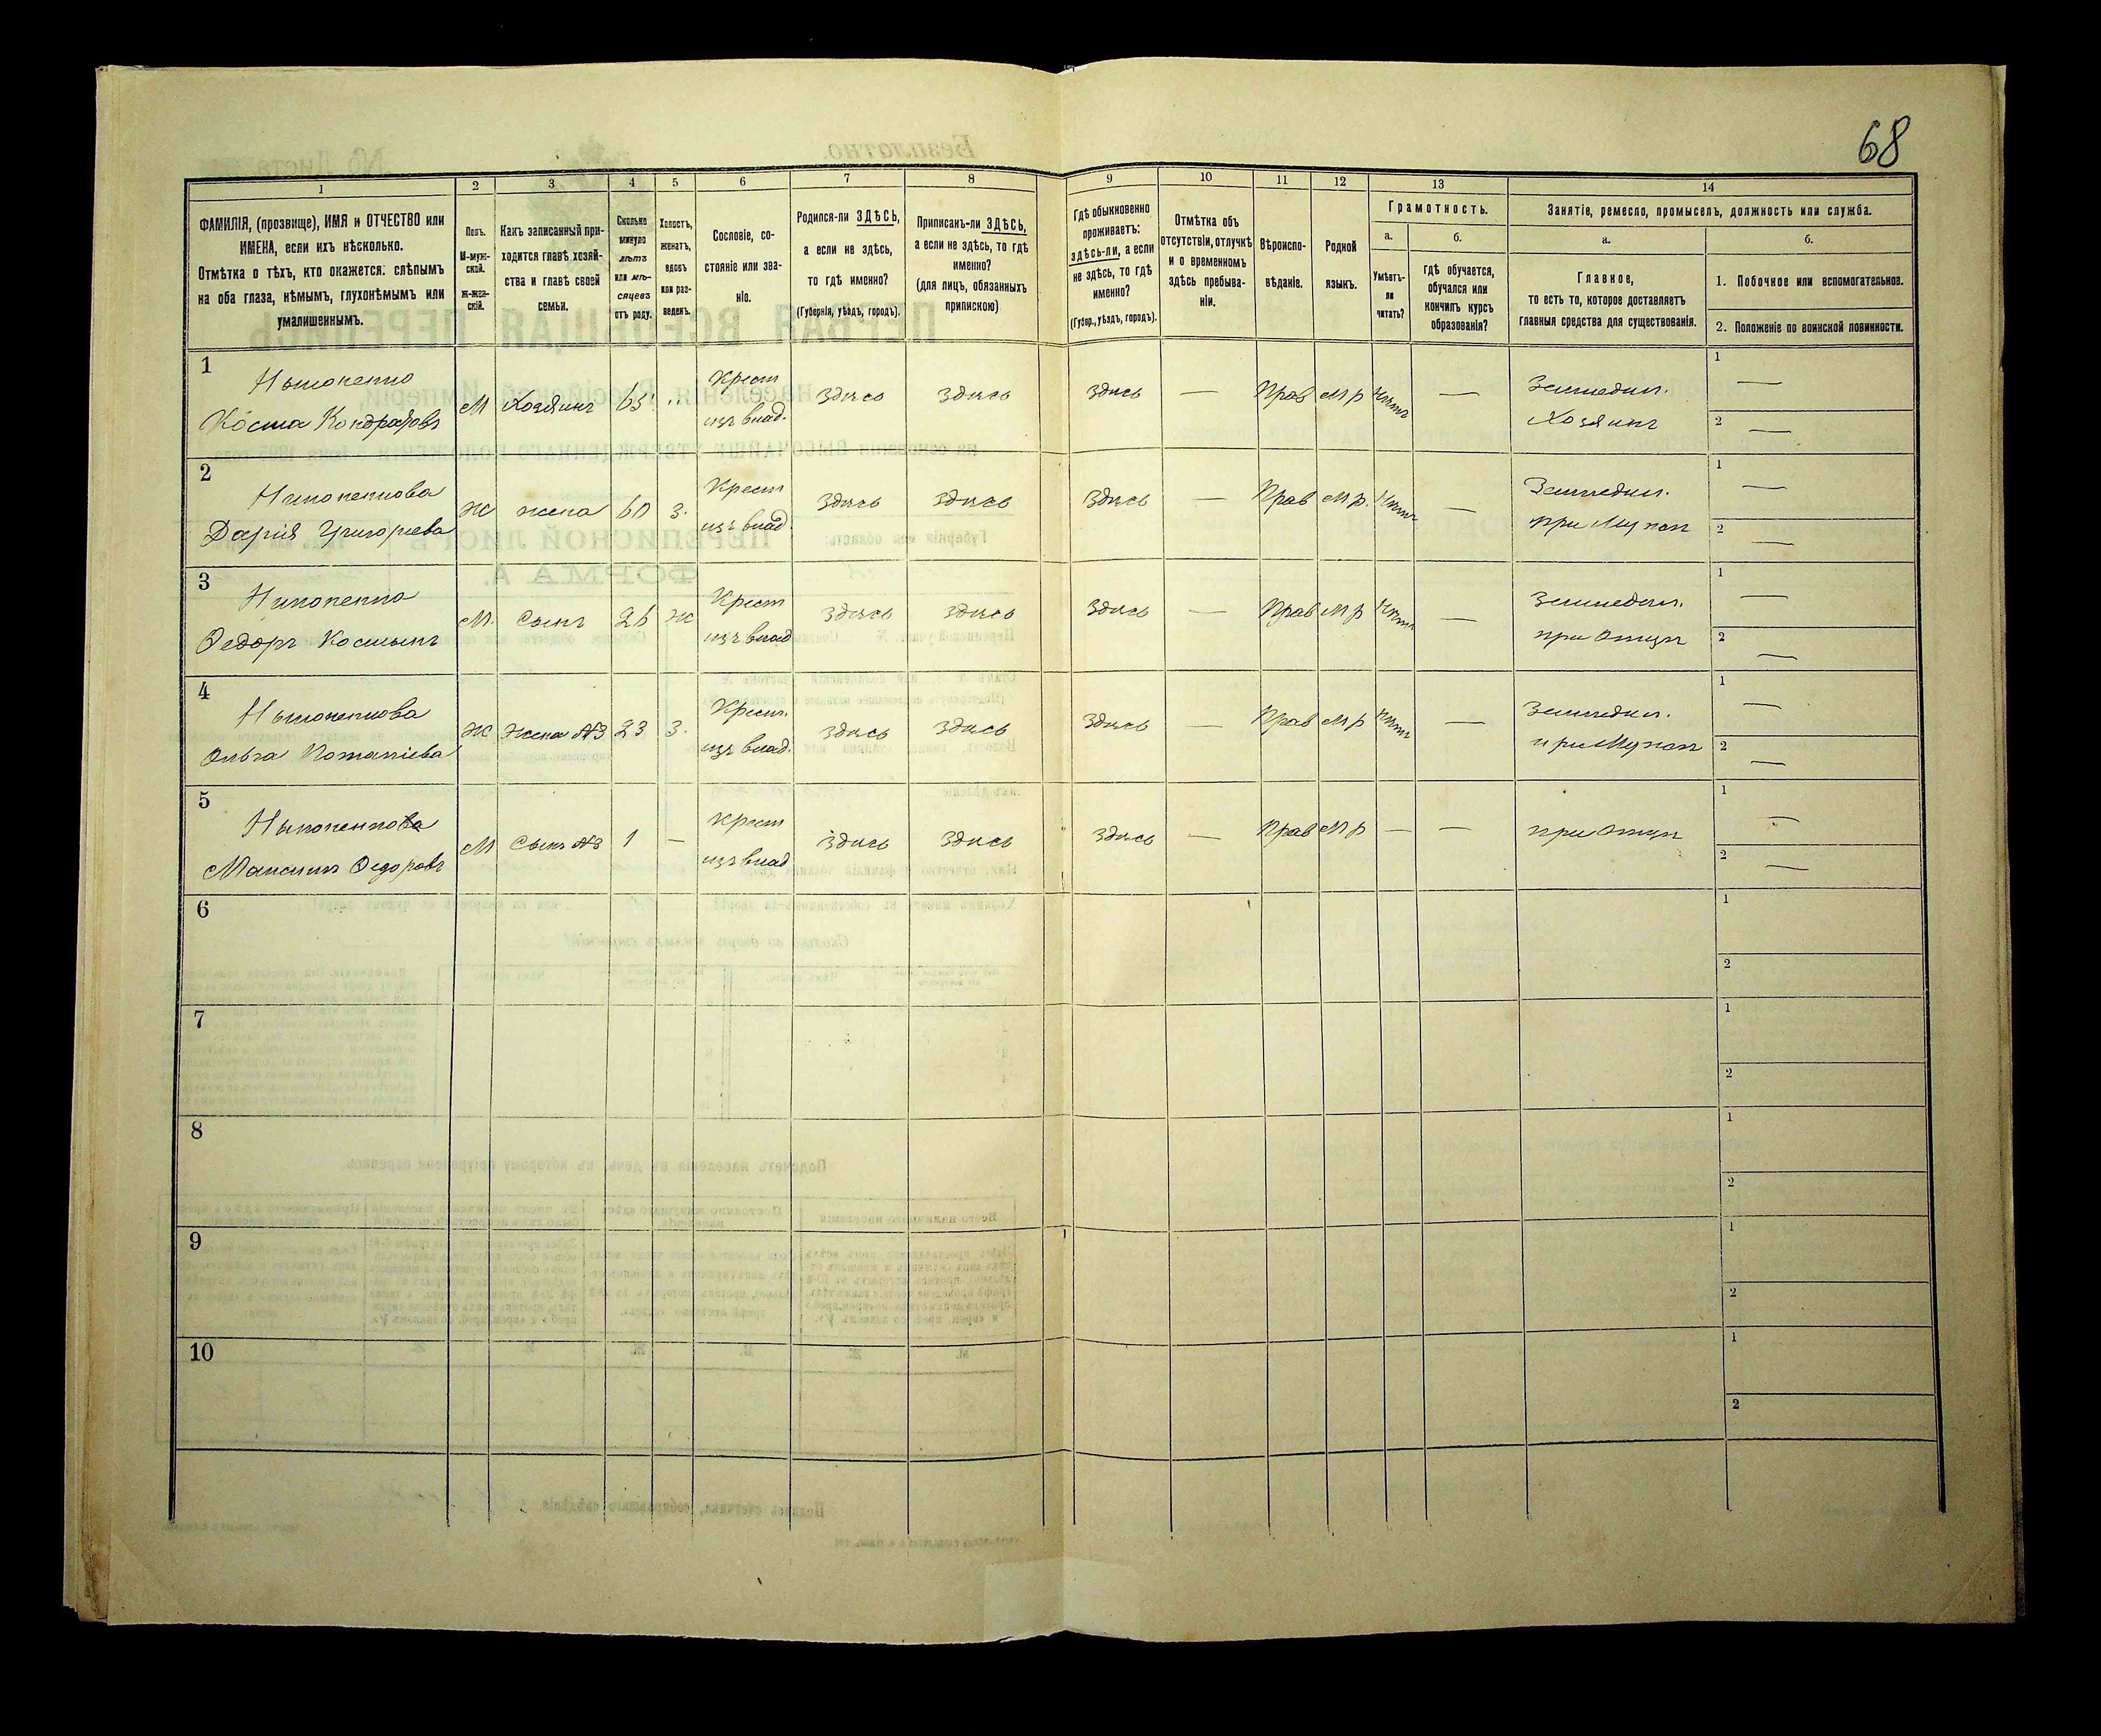 68
1
2
3
4
5
6
7
8
9
10
11
12
13
14
ФАМИЛІЯ, (прозвище), ИМЯ и ОТЧЕСТВО или
ИМЕНА, если ихъ нѣсколько.
Отмѣтка о тѣхъ, кто окажется: слѣпымъ
на оба глаза, нѣмымъ, глухонѣмымъ или
умалишеннымъ.
Полъ.
М-муж-
ской.
Ж-жен-
скій.
Какъ записанный при-
ходится главѣ хозяй-
ства и главѣ своей
семьи.
Сколько
минуло
лѣтъ
или мѣ-
сяцевъ
отъ роду.
Холостъ,
женатъ,
вдовъ
или раз-
веденъ.
Сословіе, со-
стояніе или зва-
ніе.
Родился-ли ЗДѢСЬ,
а если не здѣсь,
то гдѣ именно?
(Губернія, уѣздъ, городъ).
Приписанъ-ли ЗДѢСЬ,
а если не здѣсь, то гдѣ
именно?
(для лицъ, обязанныхъ
припискою)
Гдѣ обыкновенно
проживаетъ:
здѣсь-ли, а если
не здѣсь, то гдѣ
именно?
(Губер., уѣздъ, городъ).
Отмѣтка объ
отсутствіи, отлучкѣ
и о временномъ
здѣсь пребыва-
ніи.
Вѣроиспо-
вѣданіе.
Родной
языкъ.
Грамотность.
а.
Умѣетъ-
ли
читать?
б.
гдѣ обучается,
обучался или
кончилъ курсъ
образованія?
Занятіе, ремесло, промыселъ, должность или служба.
а.
Главное,
то есть то, которое доставляетъ
главныя средства для существованія.
б.
1. Побочное или вспомогательное.
2. Положеніе по воинской повинности.
1
Косма Кондратовъ
М Хозяинъ 65 Крест здѣсь здѣсь здѣсь — Прав М р нѣтъ — Земледѣл.
Хозяинъ
1 —
2 —
2
Дарія Григорьева
Ж жена 60 З. Крест здѣсь здѣсь здѣсь — Прав М р. нѣтъ — Земледѣл.
при Мужѣ
1 —
2 —
3
Ѳедоръ Косминъ
М. Сынъ 26 Ж Крест здѣсь здѣсь здѣсь — Прав М р нѣтъ — Земледѣл.
при Отцѣ
1 —
2 —
4
Ольга Потапіева
Ж Жена №3 23 З. Крест. здѣсь здѣсь здѣсь — Прав М р нѣтъ — Земледѣл.
при Мужѣ
1 —
2 —
5
Максимъ Ѳедоровъ
М Сынъ №3 1 — Крест здѣсь здѣсь здѣсь — Прав М р — — при Отцѣ
1 —
2 —
6
1
2
7
1
2
8
1
2
9
1
2
10
1
2